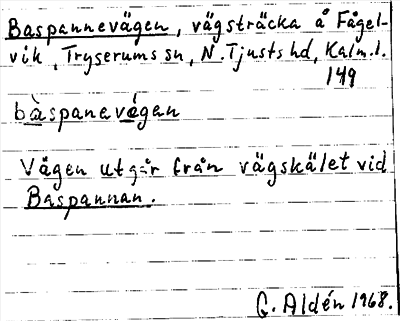 Baspannevägen, vägsträcka å Fågel-
vik, Tryserums sn, N. Tjusts hd, Kalm.l.
149
bàspanevé̱gen
Vägen utgår från vägskälet vid
Baspannan.
G. Aldén 1968.